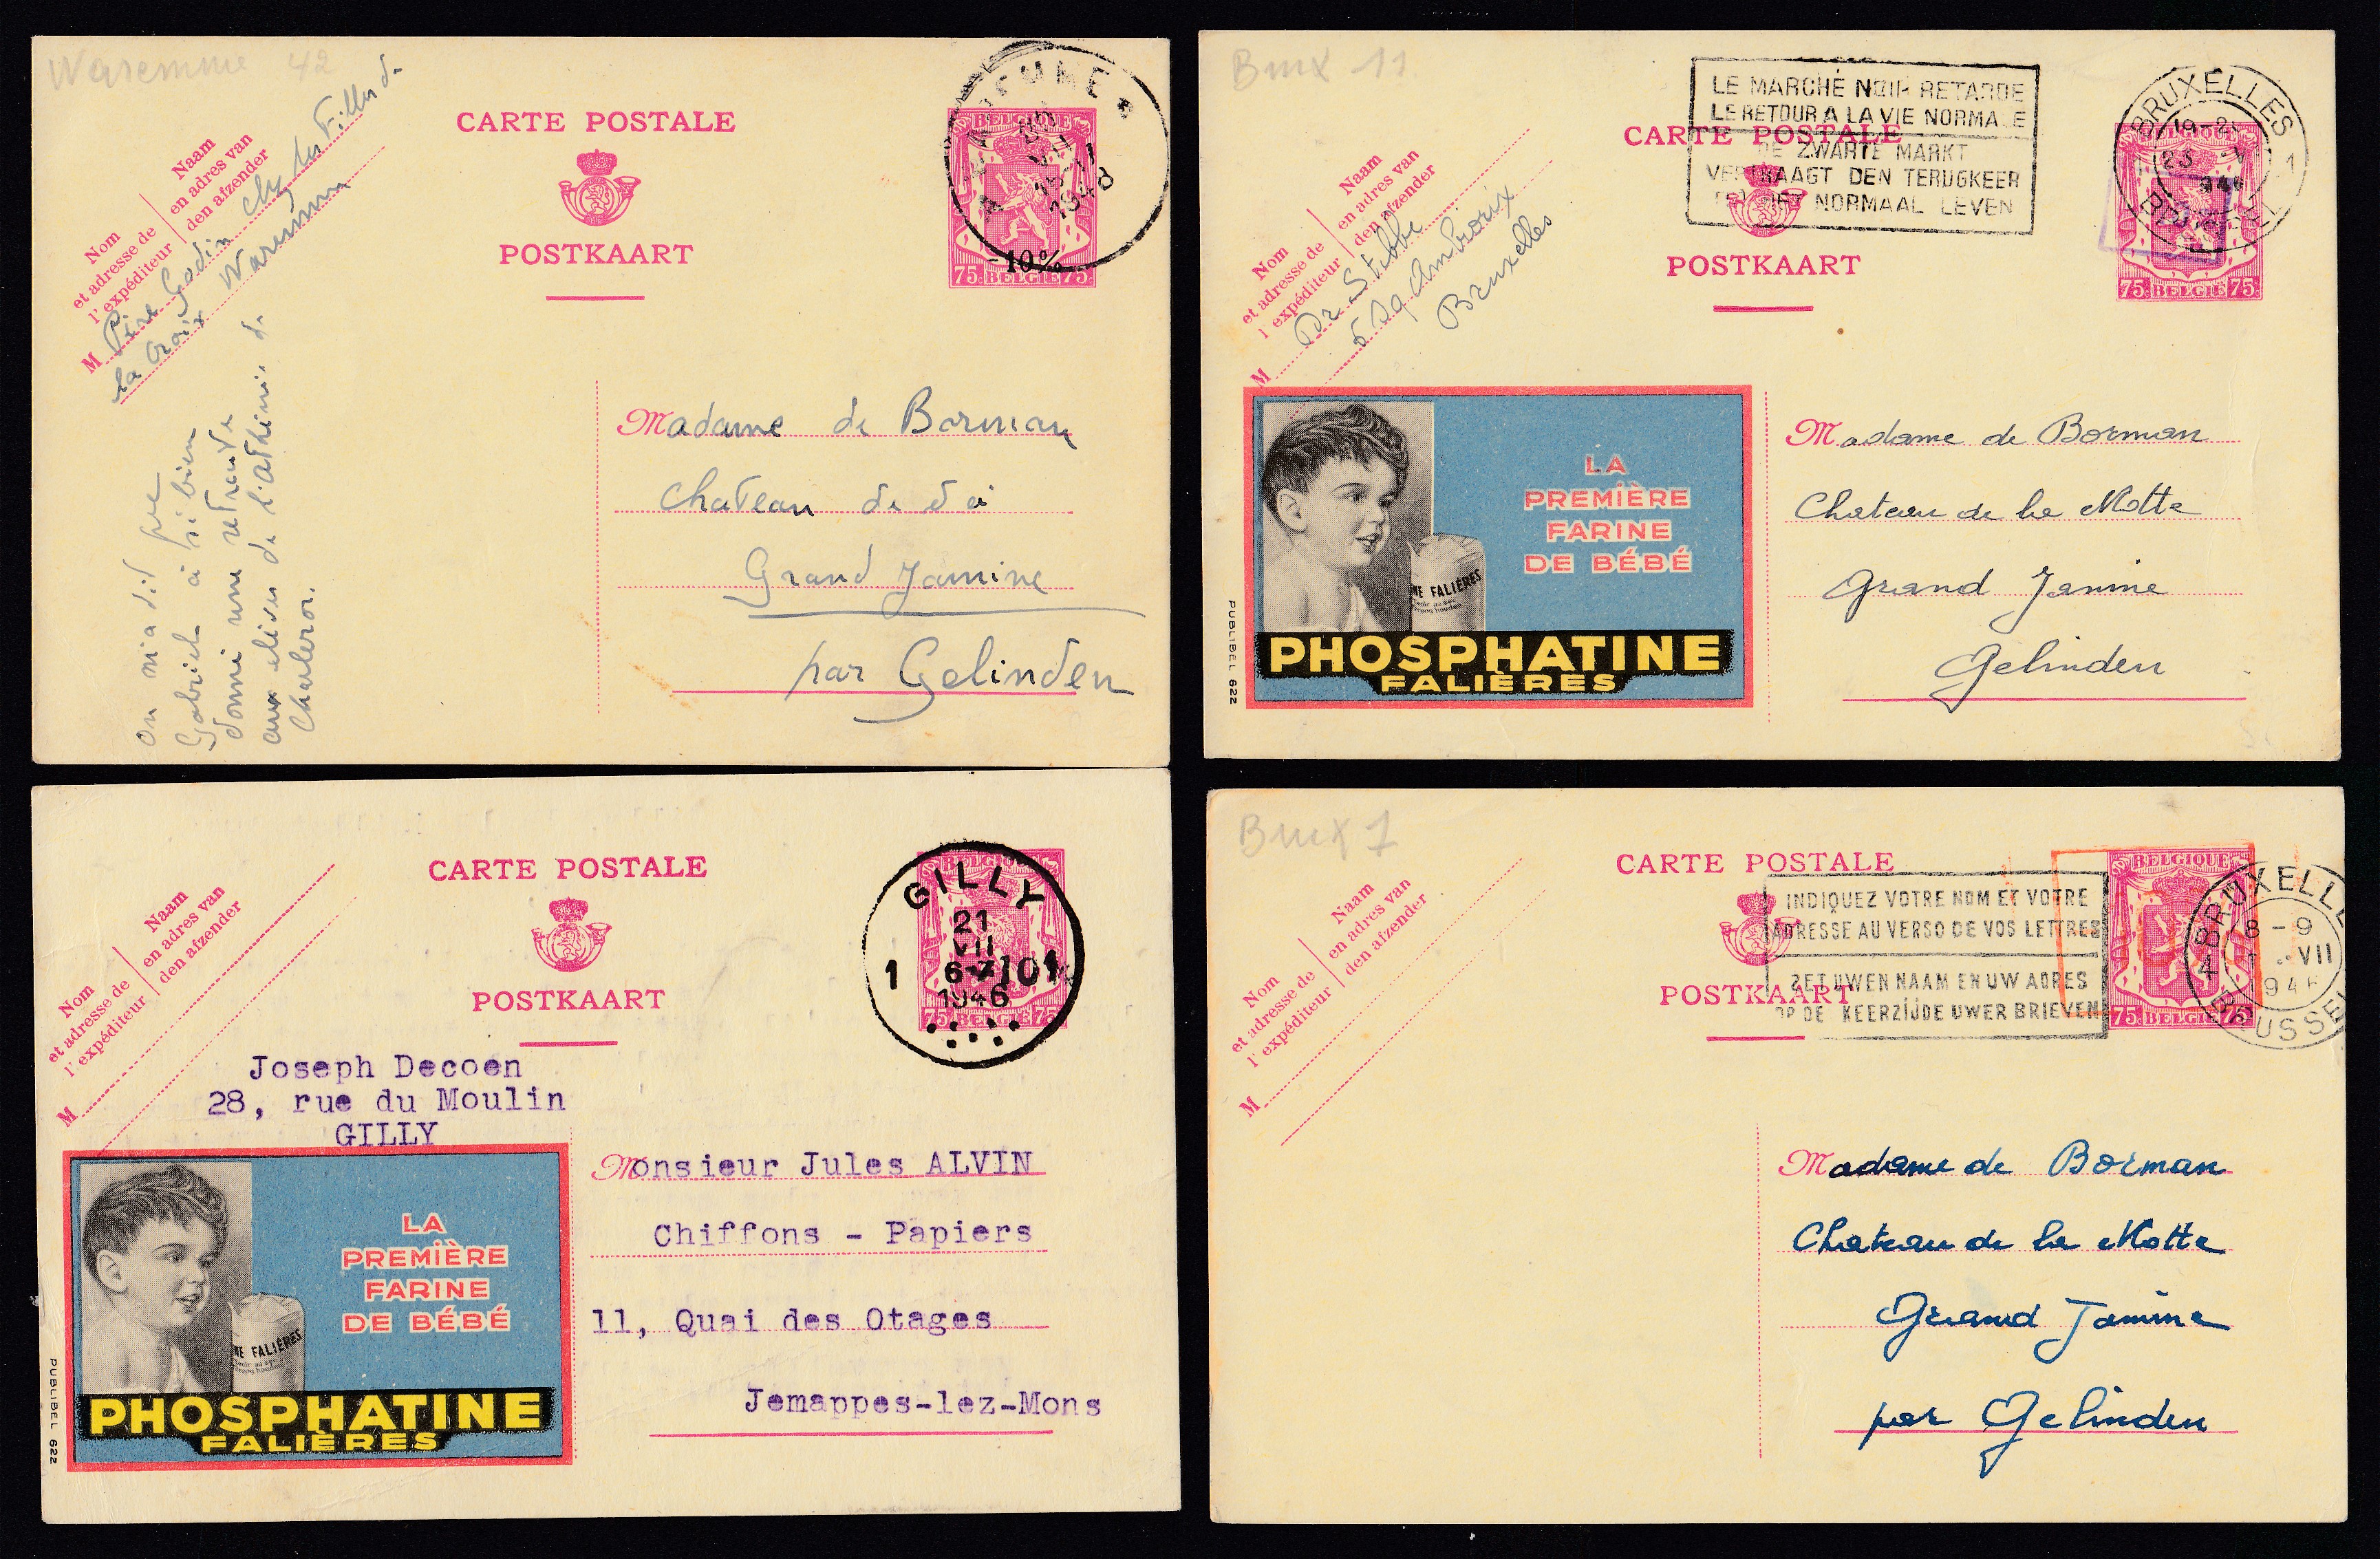 Waremme 42
CARTE POSTALE
POSTKAART
Nom
et adresse de
l'expéditeur
Naam
en adres van
den afzender
M Père Godin chez les Filles de
la Croix Waremme
1948
BELGIQUE
-10%
75 BELGIE 75
Madame de Borman
Chateau de
Grand Jamine
par Gelinden
on m'a dit que
Gabriel a si bien
donné une retraite
aux élèves de l'athénée de
Charleroi.
Brux 11
LE MARCHÉ NOIR RETARDE
LE RETOUR A LA VIE NORMALE
DE ZWARTE MARKT
VERTRAAGT DEN TERUGKEER
NORMAAL LEVEN
CARTE POSTALE
POSTKAART
Nom
et adresse de
l'expéditeur
Naam
en adres van
den afzender
M Dr Stibbe
Sq Ambiorix
Bruxelles
BRUXELLES 1
BELGIQUE
75 BELGIE 75
LA
PREMIÈRE
FARINE
DE BÉBÉ
NE FALIÈRES
PHOSPHATINE
FALIÈRES
PUBLIBEL 622
Madame de Borman
Chateau de la Motte
Grand Jamine
Gelinden
CARTE POSTALE
POSTKAART
Nom
et adresse de
l'expéditeur
Naam
en adres van
den afzender
M
GILLY
21
VII
6-7
1946
1
BELGIQUE
75 BELGIE 75
Joseph Decoen
28, rue du Moulin
GILLY
LA
PREMIÈRE
FARINE
DE BÉBÉ
NE FALIÈRES
PHOSPHATINE
FALIÈRES
PUBLIBEL 622
Monsieur Jules ALVIN
Chiffons - Papiers
11, Quai des Otages
Jemappes-lez-Mons
Brux 7
CARTE POSTALE
POSTKAART
Nom
et adresse de
l'expéditeur
Naam
en adres van
den afzender
M
INDIQUEZ VOTRE NOM ET VOTRE
ADRESSE AU VERSO DE VOS LETTRES
ZET UWEN NAAM EN UW ADRES
OP DE KEERZIJDE UWER BRIEVEN
BELGIQUE
75 BELGIE 75
8-9
VII
Madame de Borman
Chateau de la Motte
Grand Jamine
par Gelinden